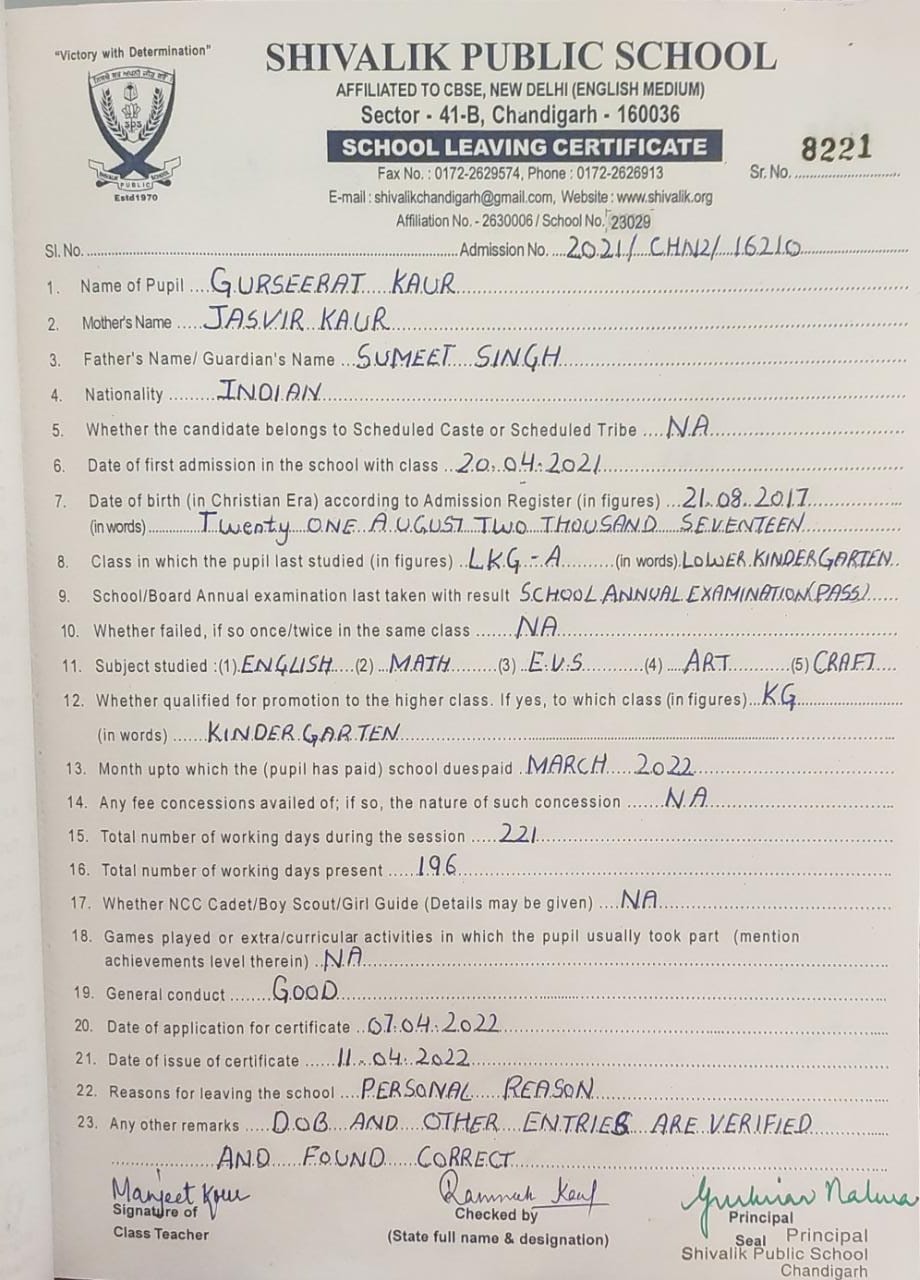 "Victory with Determination"
SHIVALIK PUBLIC SCHOOL
AFFILIATED TO CBSE, NEW DELHI (ENGLISH MEDIUM)
Sector - 41-B, Chandigarh - 160036
SCHOOL LEAVING CERTIFICATE
Sr. No. 8221
Fax No. : 0172-2629574, Phone : 0172-2626913
E-mail : shivalikchandigarh@gmail.com, Website : www.shivalik.org
Affiliation No. - 2630006 / School No. 23029
SPS
SHIVALIK PUBLIC SCHOOL
Estd1970
Sl. No. Admission No. 2021/ CHN2/ 16210
1. Name of Pupil GURSEERAT KAUR
2. Mother's Name JASVIR KAUR
3. Father's Name/ Guardian's Name SUMEET SINGH
4. Nationality INDIAN
5. Whether the candidate belongs to Scheduled Caste or Scheduled Tribe NA
6. Date of first admission in the school with class 20.04.2021
7. Date of birth (in Christian Era) according to Admission Register (in figures) 21.08.2017
(in words) Twenty ONE AUGUST TWO THOUSAND SEVENTEEN
8. Class in which the pupil last studied (in figures) LKG-A (in words) LOWER KINDERGARTEN
9. School/Board Annual examination last taken with result SCHOOL ANNUAL EXAMINATION(PASS)
10. Whether failed, if so once/twice in the same class NA
11. Subject studied :(1) ENGLISH (2) MATH (3) E.V.S (4) ART (5) CRAFT
12. Whether qualified for promotion to the higher class. If yes, to which class (in figures) KG
(in words) KINDERGARTEN
13. Month upto which the (pupil has paid) school duespaid MARCH 2022
14. Any fee concessions availed of; if so, the nature of such concession NA
15. Total number of working days during the session 221
16. Total number of working days present 196
17. Whether NCC Cadet/Boy Scout/Girl Guide (Details may be given) NA
18. Games played or extra/curricular activities in which the pupil usually took part (mention
achievements level therein) NA
19. General conduct GOOD
20. Date of application for certificate 07.04.2022
21. Date of issue of certificate 11.04.2022
22. Reasons for leaving the school PERSONAL REASON
23. Any other remarks DOB AND OTHER ENTRIES ARE VERIFIED
AND FOUND CORRECT
Manjeet Kour
Signature of
Class Teacher
Kaur
Checked by
(State full name & designation)
Principal
Seal Principal
Shivalik Public School
Chandigarh